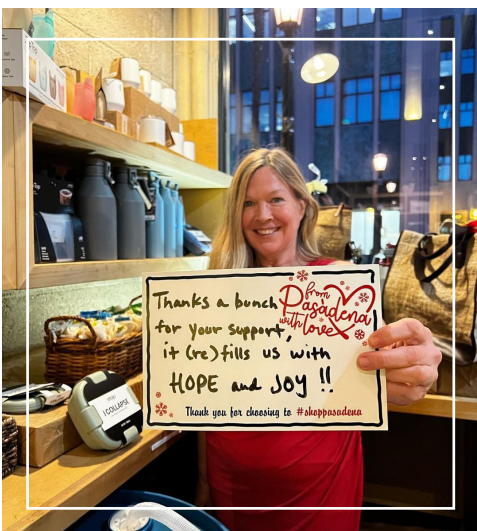 Thanks a bunch
for your support,
it (re)fills us with
HOPE and JOY !!
from
Pasadena
with love
Thank you for choosing to #shoppasadena
I COLLAPSE